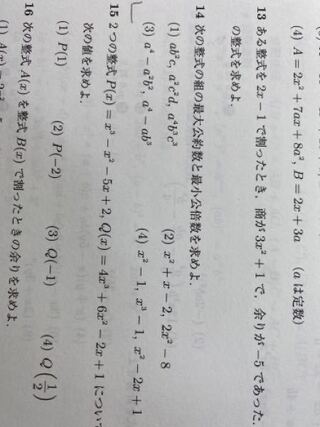 (4) A = 2x² + 7ax + 8a², B = 2x + 3a (a は定数)
13 ある整式を 2x − 1 で割ったとき，商が 3x² + 1 で，余りが −5 であった．
の整式を求めよ．
14 次の整式の組の最大公約数と最小公倍数を求めよ．
(1) ab²c, a²c²d, a⁴b³c³
(2) x² + x − 2, 2x² − 8
(3) a⁴ − a²b², a⁴ − ab³
(4) x² − 1, x³ − 1, x² − 2x + 1
15 2つの整式 P(x) = x³ − x² − 5x + 2, Q(x) = 4x³ + 6x² − 2x + 1 につい
次の値を求めよ．
(1) P(1) (2) P(−2) (3) Q(−1) (4) Q(1/2)
16 次の整式 A(x) を整式 B(x) で割ったときの余りを求めよ．